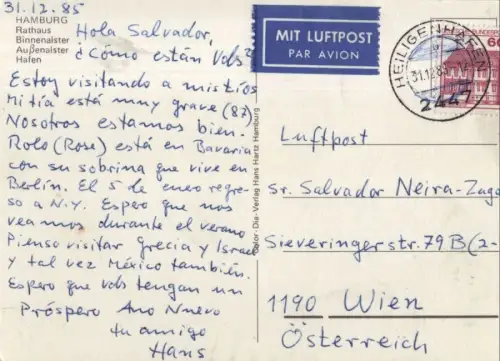 31.12.85
HAMBURG
Rathaus
Binnenalster
Außenalster
Hafen
Hola Salvador,
¿Cómo están Vds?
Estoy visitando a mis tíos
Mi tía está muy grave (87)
Nosotros estamos bien.
Rolo (Rose) está en Bavaria
con su sobrina que vive en
Berlin. El 5 de enero regre-
so a N.Y. Espero que nos
veamos durante el verano
Pienso visitar Grecia y Israel
y tal vez México también.
Espero que Vds tengan un
Próspero Ano Nuevo
tu amigo
Hans
Color-Dia-Verlag Hans Hartz Hamburg
MIT LUFTPOST
PAR AVION
HEILIGENHAFEN
31.12.85
2447
60
Luftpost
Sr. Salvador Neira-Zugo
Sieveringerstr. 79B (2-
1190 Wien
Österreich